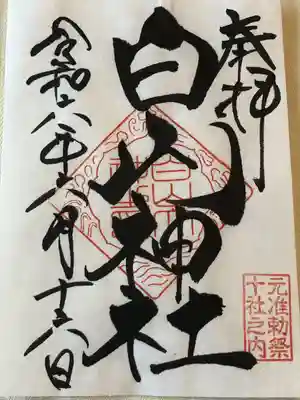 奉拝
白山神社
元准勅祭
十社之内
令和六年六月十六日